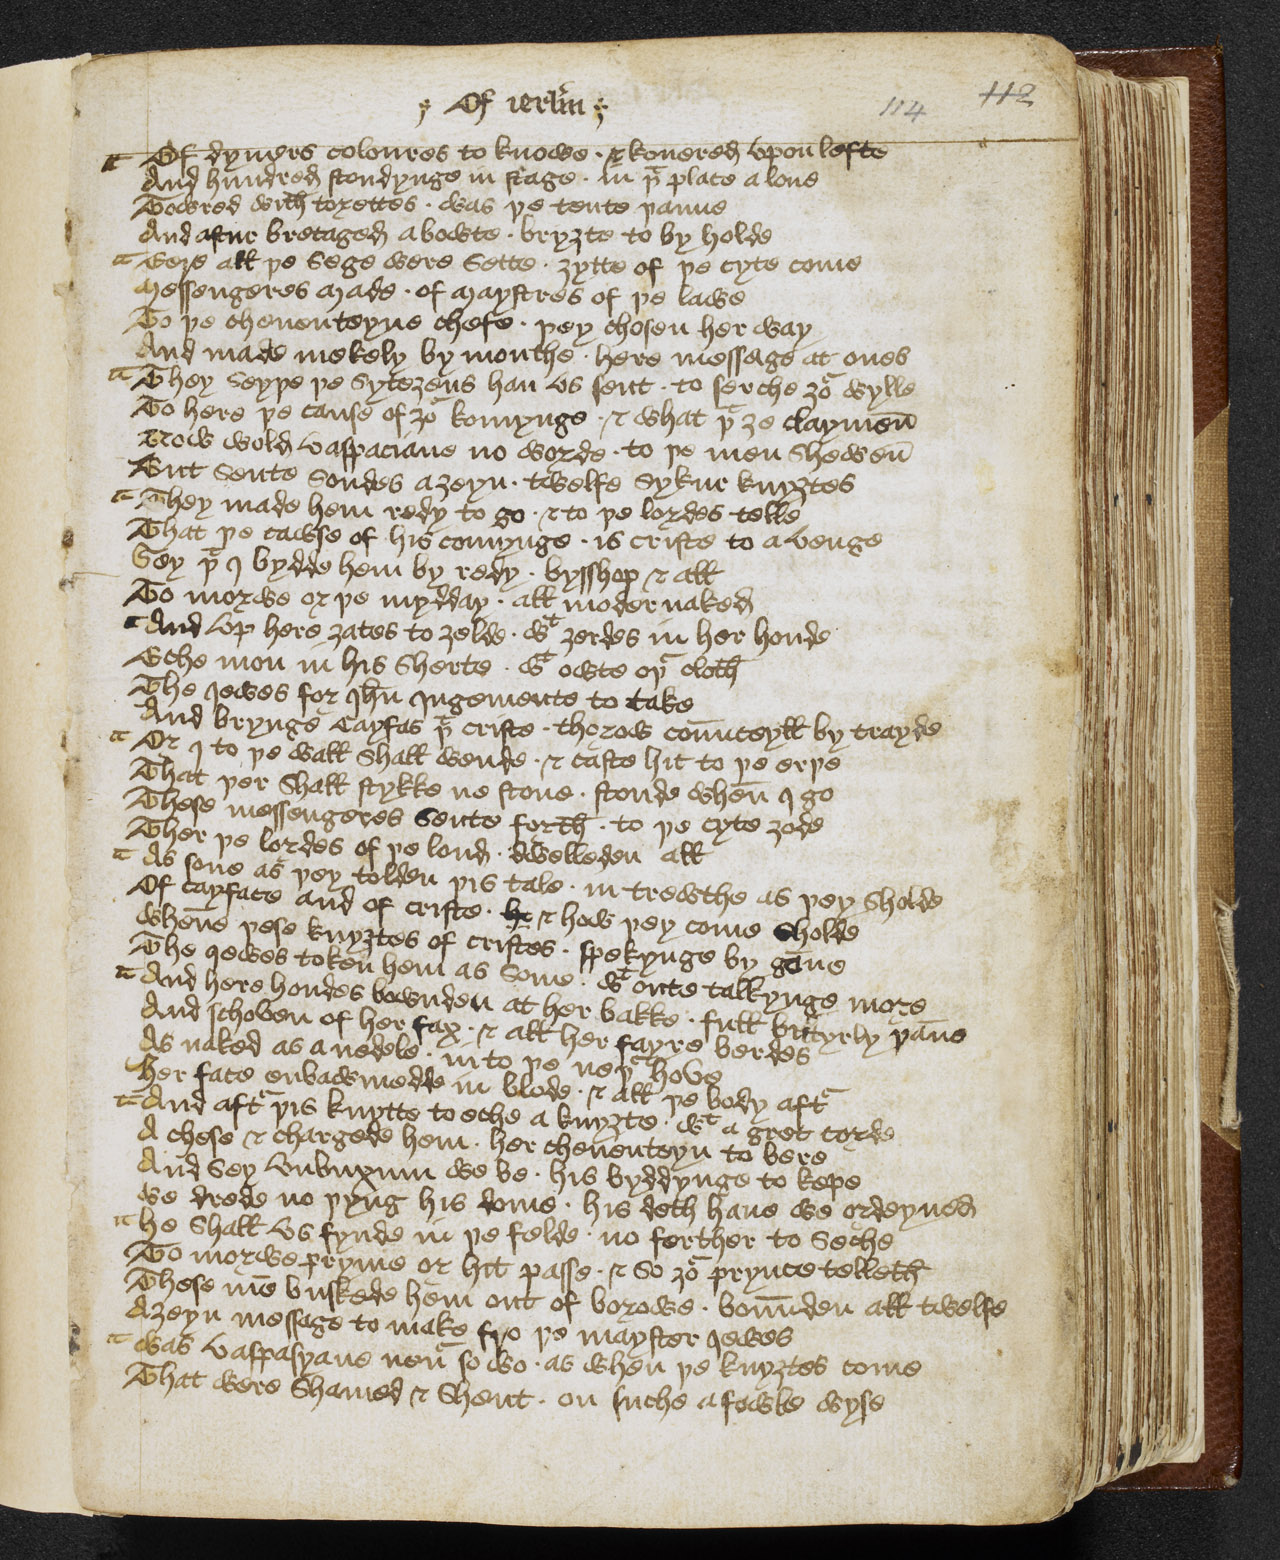 Of ierłm
114 112
Of dyuers coloures to knowe · & kouered vpon lofte
And hundred stondynge in stage · in þͭ place alone
Towred with torettes · was þe tente þanne
And aftur bretaged abowte · bryȝte to by holde
Gere all þe Sege were Sette · ȝytte of þe cyte come
Messengeres made · of Maystres of þe lawe
To þe cheuenteyne chefe · þey chosen her way
And made mekely by mouthe · here message at ones
They Seyþe þe Sytezens han vs sent · to serche ȝoͬ wylle
To here þe cause of ȝoͬ komynge · & what þͭ ȝe claymen̄
Now wold vaspaciane no worde · to þe men Shewen̄
But Sente Sondes aȝeyn · twelfe Sykur knyȝtes
They made hem redy to go · & to þe lordes telle
That þe cawse of his comynge · is criste to a venge
Sey þͭ I bydde hem by redy · bysshop & all
To morwe or þe mydday · all moder naked
And vp here ȝates to ȝelde · wͭ ȝerdes in her honde
Eche mon in his Sherte · wͭ owte oþͬ cloth
The Iewes for Ihū Iugemente to take
And brynge Cayfas þͭ criste · thorow coūnteyll by trayde
Or I to þe wall Shall wende · & caste hit to þe erþe
That þer Shall stykke ne stone · stonde when̄ I go
These messengeres Sente forth · to þe cyte ȝode
Ther þe lordes of þe lond · dwelleden all
As sone as þey tolden þis tale · in trewthe as þey Sholde
Of cayface and of criste · he & how þey come Sholde
When̄e þese knyȝtes of cristes · spekynge by gāne
The Iewes token hem as Some · wͭ oute talkynge more
And here hondes bownden at her bakke · full bittyrly þāne
And schoven of her fax · & all her fayre berdes
As naked as a nedele · in to þe neþͬ hove
Her face enbawmedde in blode · & all þe body aftͬ
And aftͬ þis knytte to eche a knyȝte · wͭ a gret corde
A chese & chargede hem · her cheuenteyn to bere
And Sey vnbuxum we be · his byddynge to kepe
We drede no þyng his dome · his deth haue we ordeyned
He Shall vs fynde in þe felde · no ferther to Seche
To morwe pryme or hit passe · & So ȝoͬ prynce telleth
These mē buskede hem out of borowe · boūnden all twelfe
Aȝeyn message to make fro þe mayster Iewes
Was vaspasyane neuͬ so wo · as when þe knyȝtes come
That were Shamed & Shent · on suche a fowle wyse